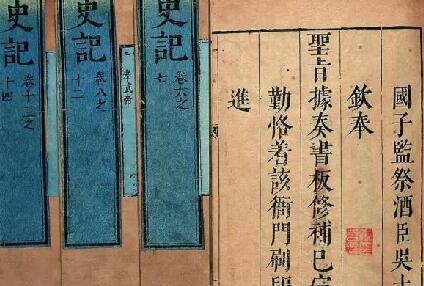 國子監祭酒臣吳士
欽奉
聖旨據奏書板修補已完
勤恪着該衙門刷印
進
史記
卷六之
七
史記
卷八之
十二
史記
卷十二之
十四